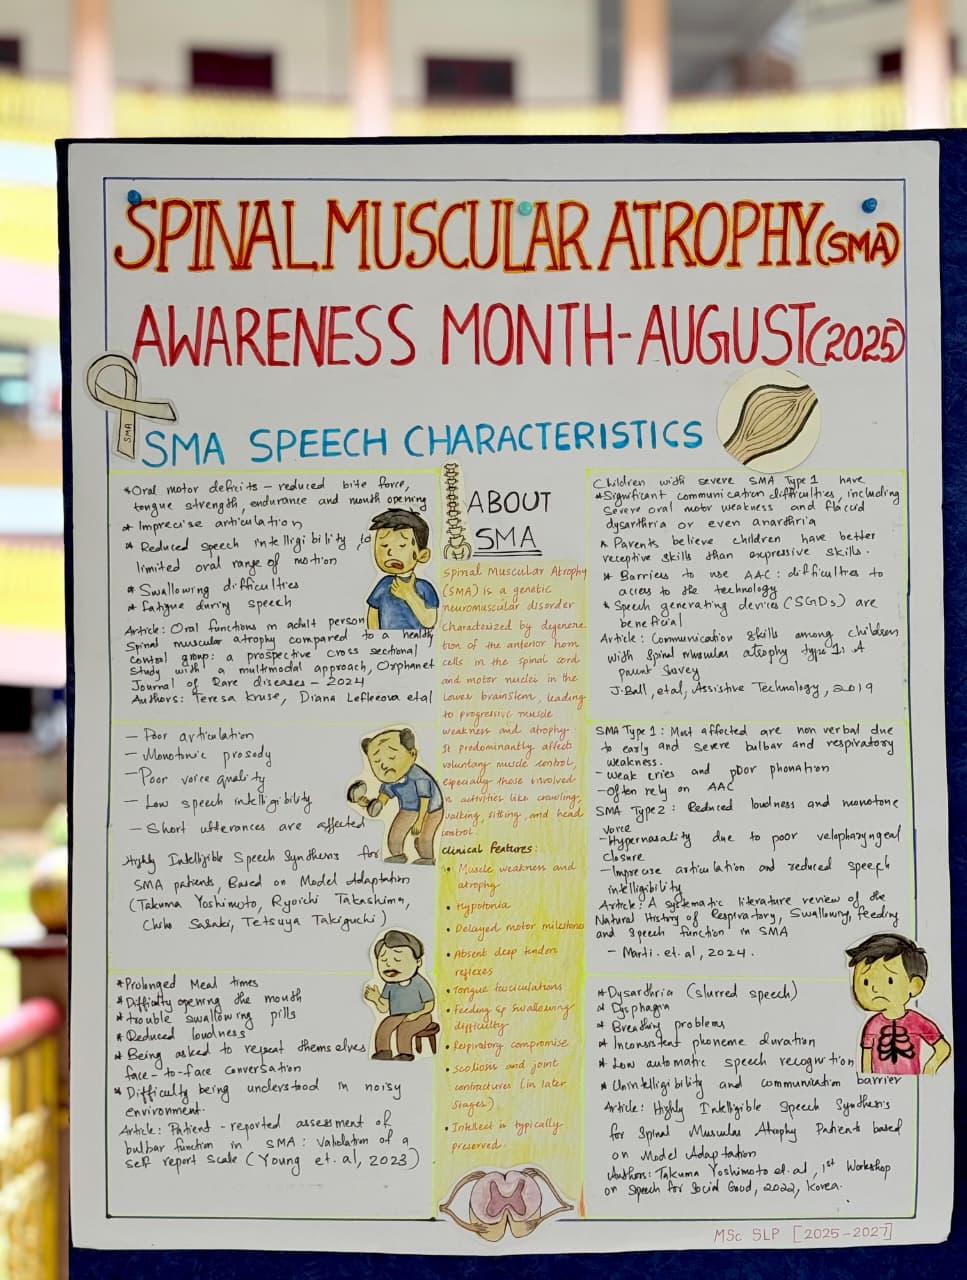 SPINAL MUSCULAR ATROPHY (SMA)
AWARENESS MONTH-AUGUST (2025)
SMA
SMA SPEECH CHARACTERISTICS
*Oral motor deficits – reduced bite force,
tongue strength, endurance and mouth opening
* Imprecise articulation
* Reduced speech intelligibility to
limited oral range of motion
* Swallowing difficulties
* Fatigue during speech
Article: Oral functions in adult person
Spinal muscular atrophy compared to a healthy
control group: a prospective cross sectional
study with a multimodal approach, Orphanet
Journal of Rare diseases – 2024
Authors: Teresa Kruse, Diana Lefleeova etal
– Poor articulation
– Monotonic prosody
– Poor voice quality
– Low speech intelligibility
– Short utterances are affected
Highly Intelligible Speech Synthesis for
SMA patients, Based on Model Adaptation
(Takuma Yoshimoto, Ryoichi Takashima,
Chiho Sasaki, Tetsuya Takiguchi)
*Prolonged Meal times
*Difficulty opening the mouth
*trouble swallowing pills
*Reduced loudness
* Being asked to repeat themselves
face-to-face conversation
*Difficulty being understood in noisy
environment.
Article: Patient-reported assessment of
bulbar function in SMA: Validation of a
self report scale (Young et.al, 2023)
ABOUT
SMA
Spinal Muscular Atrophy
(SMA) is a genetic
neuromuscular disorder
characterized by degenera
tion of the anterior horn
cells in the spinal cord
and motor nuclei in the
lower brainstem, leading
to progressive muscle
weakness and atrophy.
It predominantly affects
voluntary muscle control,
especially those involved
in activities like crawling,
walking, sitting, and head
control.
Clinical Features:
• Muscle weakness and
atrophy
• Hypotonia
• Delayed motor milestones
• Absent deep tendon
reflexes
• Tongue fasciculations
• Feeding & swallowing
difficulty
• Respiratory compromise
• Scoliosis and joint
contractures (in later
stages)
• Intellect is typically
preserved.
Children with severe SMA Type 1 have
*Significant communication difficulties, including
severe oral motor weakness and flaccid
dysarthria or even anarthria
* Parents believe children have better
receptive skills than expressive skills.
* Barriers to use AAC: difficulties to
access to the technology
* Speech generating devices (SGDs) are
beneficial
Article: Communication skills among children
with spinal muscular atrophy type 1: A
parent survey
J.Ball, etal, Assistive Technology, 2019
SMA Type 1: Most affected are non verbal due
to early and severe bulbar and respiratory
weakness.
–Weak cries and poor phonation
–Often rely on AAC
SMA Type2: Reduced loudness and monotone
voice
–Hypernasality due to poor velopharyngeal
closure
–Imprecise articulation and reduced speech
intelligibility
Article: A systematic literature review of the
Natural History of Respiratory, Swallowing, feeding
and speech function in SMA
– Marti.et.al, 2024.
*Dysarthria (slurred speech)
* Dysphagia
* Breathing problems
* Inconsistent phoneme duration
* Low automatic speech recognition
* Unintelligibility and communication barrier
Article: Highly Intelligible Speech Synthesis
for Spinal Muscular Atrophy Patients based
on Model Adaptation
Authors: Takuma Yoshimoto et.al, 1st Workshop
on Speech for Social Good, 2022, Korea.
MSc SLP [2025-2027]